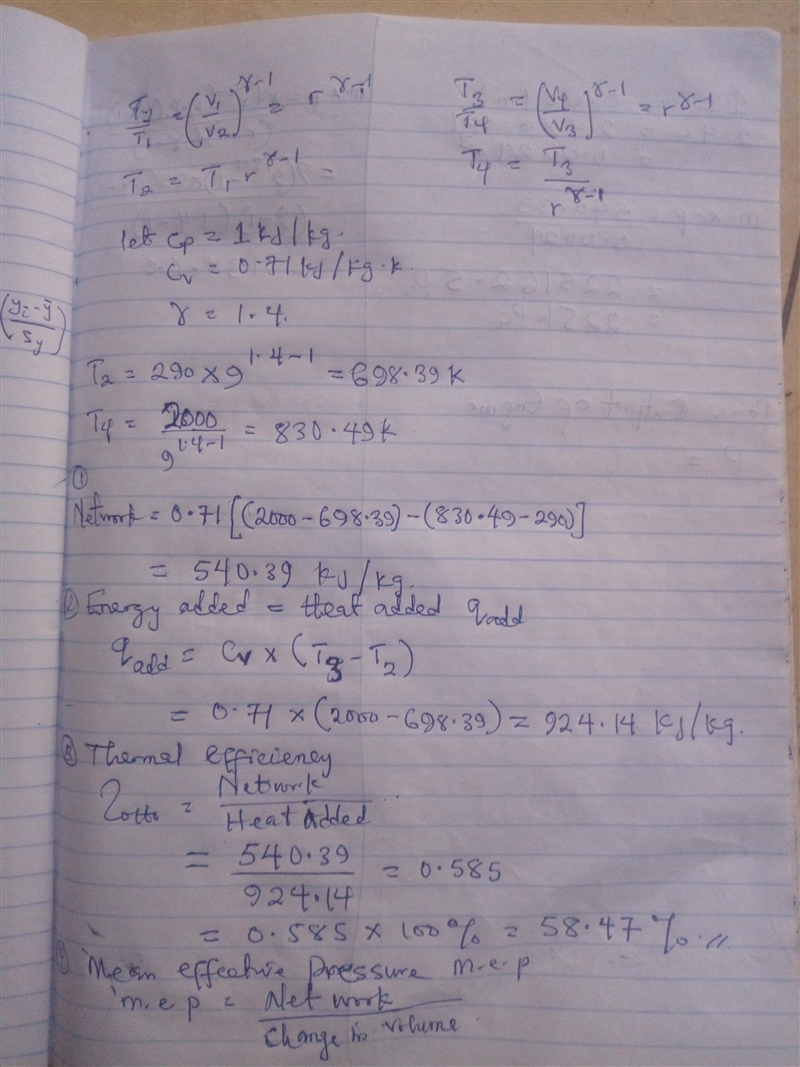 T2/T1 = (V1/V2)^γ-1 = r^γ-1
T3/T4 = (V4/V3)^γ-1 = r^γ-1
T2 = T1 r^γ-1 =
T4 = T3/r^γ-1
let Cp = 1 kJ/kg.
Cv = 0.71 kJ/kg.k.
γ = 1.4.
(yi - ȳ / Sy)
T2 = 290 × 9^1.4-1 = 698.39 K
T4 = 2000/9^1.4-1 = 830.49 k
①
Network = 0.71 [(2000 - 698.39) - (830.49 - 290)]
= 540.39 kJ/kg.
② Energy added = Heat added qadd
qadd = Cv × (T3 - T2)
= 0.71 × (2000 - 698.39) = 924.14 kJ/kg.
③ Thermal efficiency
ηotto = Network/Heat Added
= 540.39/924.14 = 0.585
= 0.585 × 100% = 58.47 %.//
Mean effective pressure m.e.p
m.e.p = Net work/Change in volume